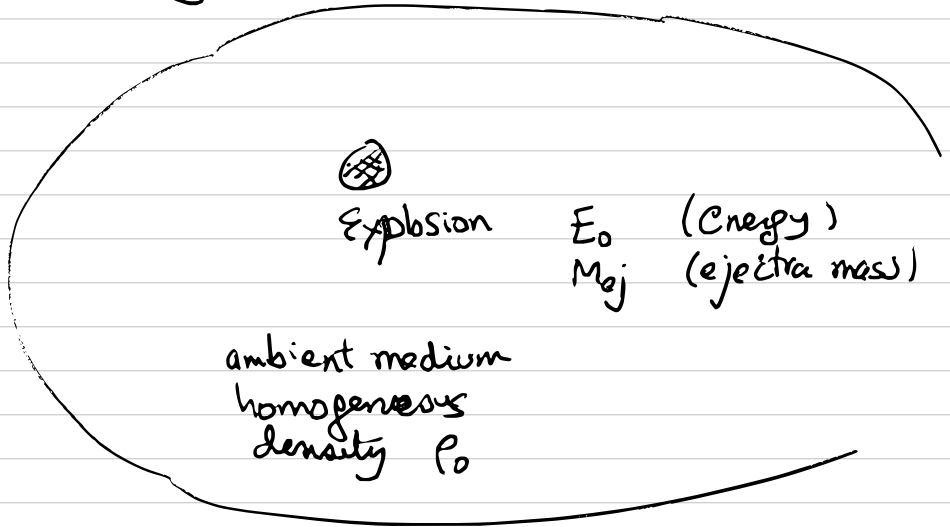 Explosion E₀ (Energy)
Mej (ejectra mass)
ambient medium
homogeneous
density ρ₀